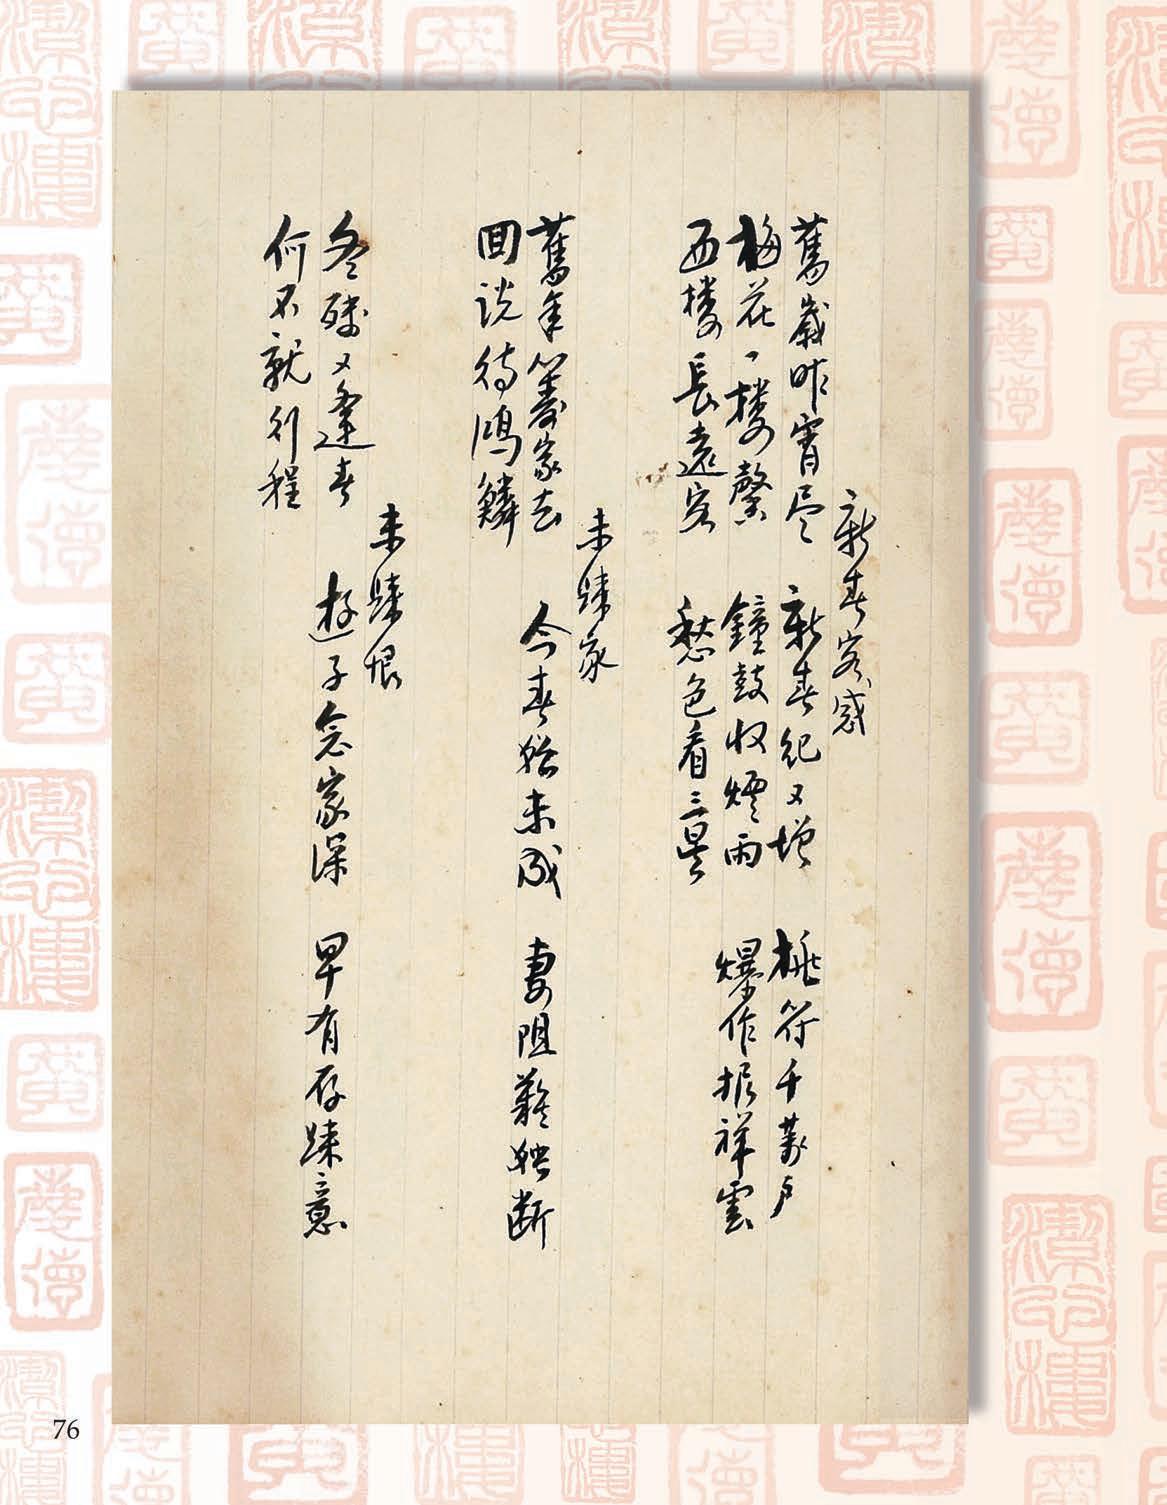 新春客感
舊歲昨宵尽 新春紀又增 桃符千萬戶
梅花一楼馨 鐘鼓收煙雨 爆作振祥雲
西楼長遠客 愁色看三星
未歸家
舊年籌家去 今春殆未成 妻阻難独断
回说待鴻鱗
未歸恨
冬殘又逢春 遊子念家深 早有存歸意
何不就行程
76